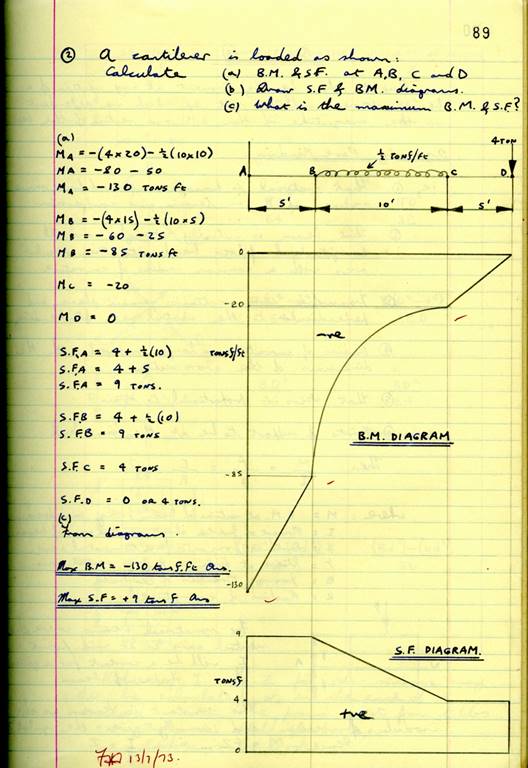 89
② A cantilever is loaded as shown:
Calculate (a) B.M. & S.F. at A, B, C and D
(b) Draw S.F & B.M. diagrams.
(c) What is the maximum B.M. & S.F?
(a)
MA = -(4×20) - ½(10×10)
MA = -80 - 50
MA = -130 TONS ft
MB = -(4×15) - ½(10×5)
MB = -60 - 25
MB = -85 TONS ft
MC = -20
MD = 0
S.F.A = 4 + ½(10)
S.F.A = 4 + 5
S.F.A = 9 TONS.
S.F.B = 4 + ½(10)
S.F.B = 9 TONS
S.F.C = 4 TONS
S.F.D = 0 OR 4 TONS.
(c)
From diagrams.
Max B.M = -130 tons f. ft Ans.
Max S.F = +9 tons f Ans
4 TON
½ TONS/ft
A B C D
5' 10' 5'
0
-20
-ve
TONS f/ft
B.M. DIAGRAM
-85
-130
9
S.F. DIAGRAM.
TONS f
4
+ve
0
13/7/73.